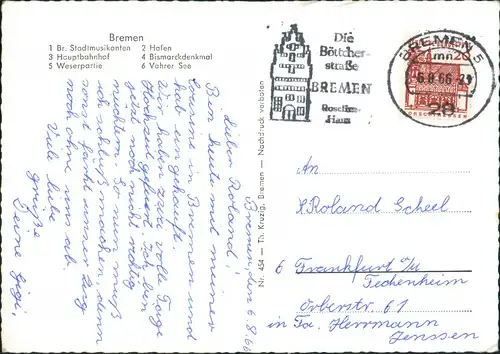 Bremen
1 Br. Stadtmusikanten 2 Hafen
3 Hauptbahnhof 4 Bismarckdenkmal
5 Weserpartie 6 Vahrer See
Bremen, den 6.8.66
Lieber Roland!
Bin heute mal meiner
Sonne in Bremen und
hab eingekauft.
Wir haben zwei volle Tage
Hochzeit gefeiert. Ich bin
jetzt noch nicht richtig
nüchtern. So nun muß
ich schluß machen, denn
sonst fährt unser Zug
noch ohne uns ab.
Viele liebe
Grüße
Deine Gigi,
Nr. 454 — Th. Kruzig, Bremen — Nachdruck verboten
Die
Böttcher-
straße
BREMEN
Roselius-
Haus
BREMEN 5
6.8.66
20
An
Roland Scheel
6 Frankfurt a/M
Fechenheim
Orberstr. 61
in Fa. Herrmann
Jenssen